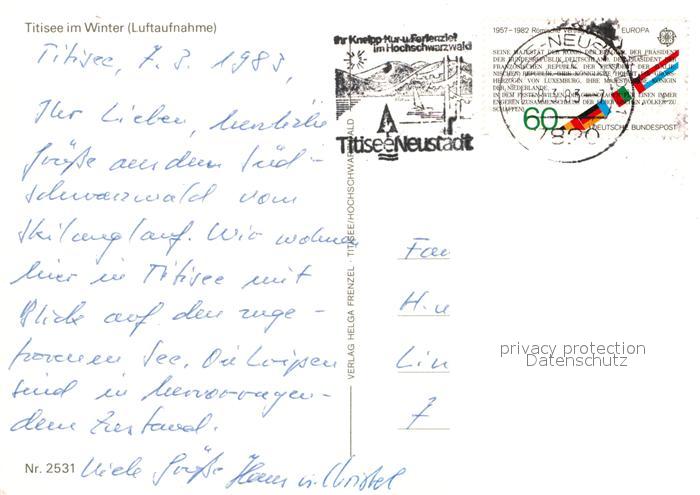 Titisee im Winter (Luftaufnahme)
Titisee, 7.3.1983,
Ihr Lieben, herzliche
Grüße aus dem Süd-
schwarzwald vom
Skilanglauf. Wir wohnen
hier in Titisee mit
Blick auf den zuge-
frorenen See. Die Loipen
sind in hervorragen-
dem Zustand.
Viele Grüße Hans u. Christel
Nr. 2531
VERLAG HELGA FRENZEL · TITISEE/HOCHSCHWARZWALD
Ihr Kneipp-Kur-u.Ferienziel
im Hochschwarzwald
Titisee Neustadt
1957–1982 Römische EUROPA
SEINE MAJESTÄT DER KÖNIG DER BELGIER, DER PRÄSIDENT
DER BUNDESREPUBLIK DEUTSCHLAND, DER PRÄSIDENT DER
FRANZÖSISCHEN REPUBLIK, DER PRÄSIDENT DER ITALIE-
NISCHEN REPUBLIK, IHRE KÖNIGLICHE HOHEIT DIE GROSS-
HERZOGIN VON LUXEMBURG, IHRE MAJESTÄT DIE KÖNIGIN
DER NIEDERLANDE
60
DEUTSCHE BUNDESPOST
-NEUS
7820
Fam
H.
Lin
7
privacy protection
Datenschutz